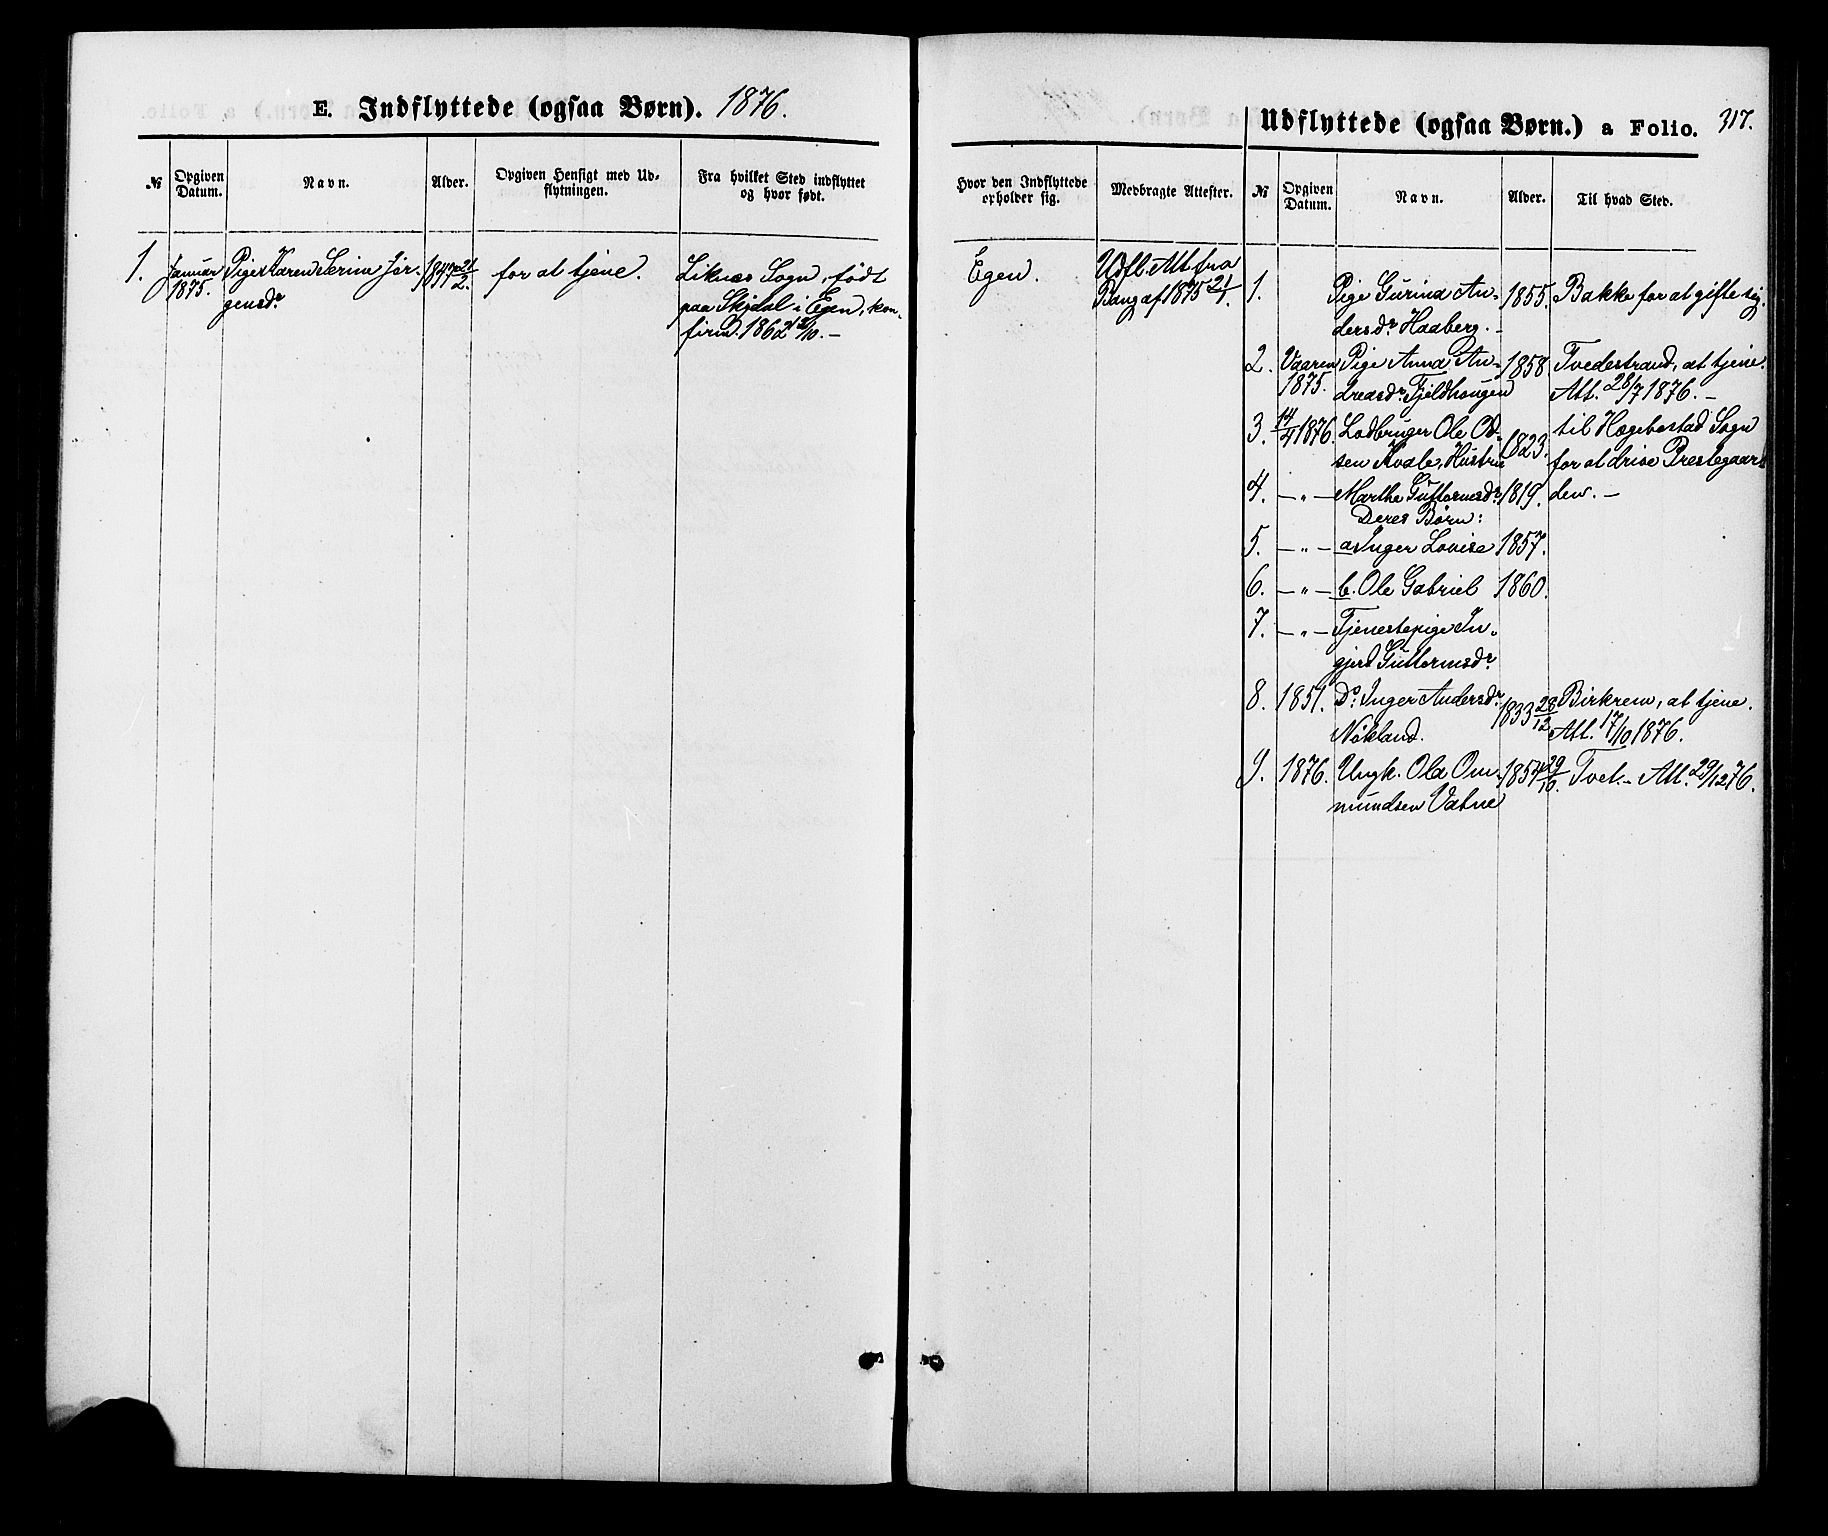 E. Indflyttede (ogsaa Børn). 1876.
№
Opgiven Datum.
Navn.
Alder.
Opgiven Hensigt med Udflytningen.
Fra hvilket Sted indflyttet og hvor født.
1.
Januar
1875.
Pige Karen Serine Jør-
gensdr
1847 21/2.
for at tjene.
Liknes Sogn, født
paa Skjdal i Egen, kon-
firmd. 1862 /10. –
Hvor den Indflyttede opholder sig.
Medbragte Attester.
Egen.
Udfl. Att. fra
Bang af 1875 21/1.
Udflyttede (ogsaa Børn.) a Folio. 317.
№
Opgiven Datum.
Navn.
Alder.
Til hvad Sted.
1. Pige Gurina An- 1855. Bakke for at gifte sig.
dersdr Haaberg. –
2. Vaaren Pige Anna An- 1858 Tvedestrand, at tjene.
1875. dreasdr. Fjeldhougen Att. 28/7 1876. –
3. 14/4 1876. Lodbruger Ole Od- 1823. til Hægebostad Sogn
sen Kvale, Hustru for at drive Prestegaar-
4. – " – Marthe Guttormsdr 1819. den. –
Deres Børn:
5. – " – a Inger Lovise 1857.
6. – " – b. Ole Gabriel 1860.
7. – " – Tjenestepige In-
gjerd Guttormsdr
8. 1851. Do. Inger Andersdr 1833 28/12 Birkrem, at tjene.
Nökland. Att. 17/10 1876.
9. 1876. Ungk. Ola Om- 1854 29/10. Tvet. – Att. 29/12 76.
mundsen Vatne